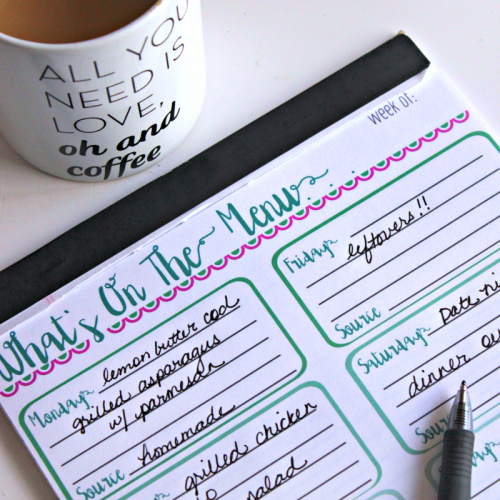 ALL YOU
NEED IS
LOVE,
oh and
coffee
week of:
What's On The Menu
Monday: lemon butter cod
grilled asparagus
w/ parmesan
Source homemade
grilled chicken
salad
Friday:
leftovers!!
Source
Saturday: Date
dinner